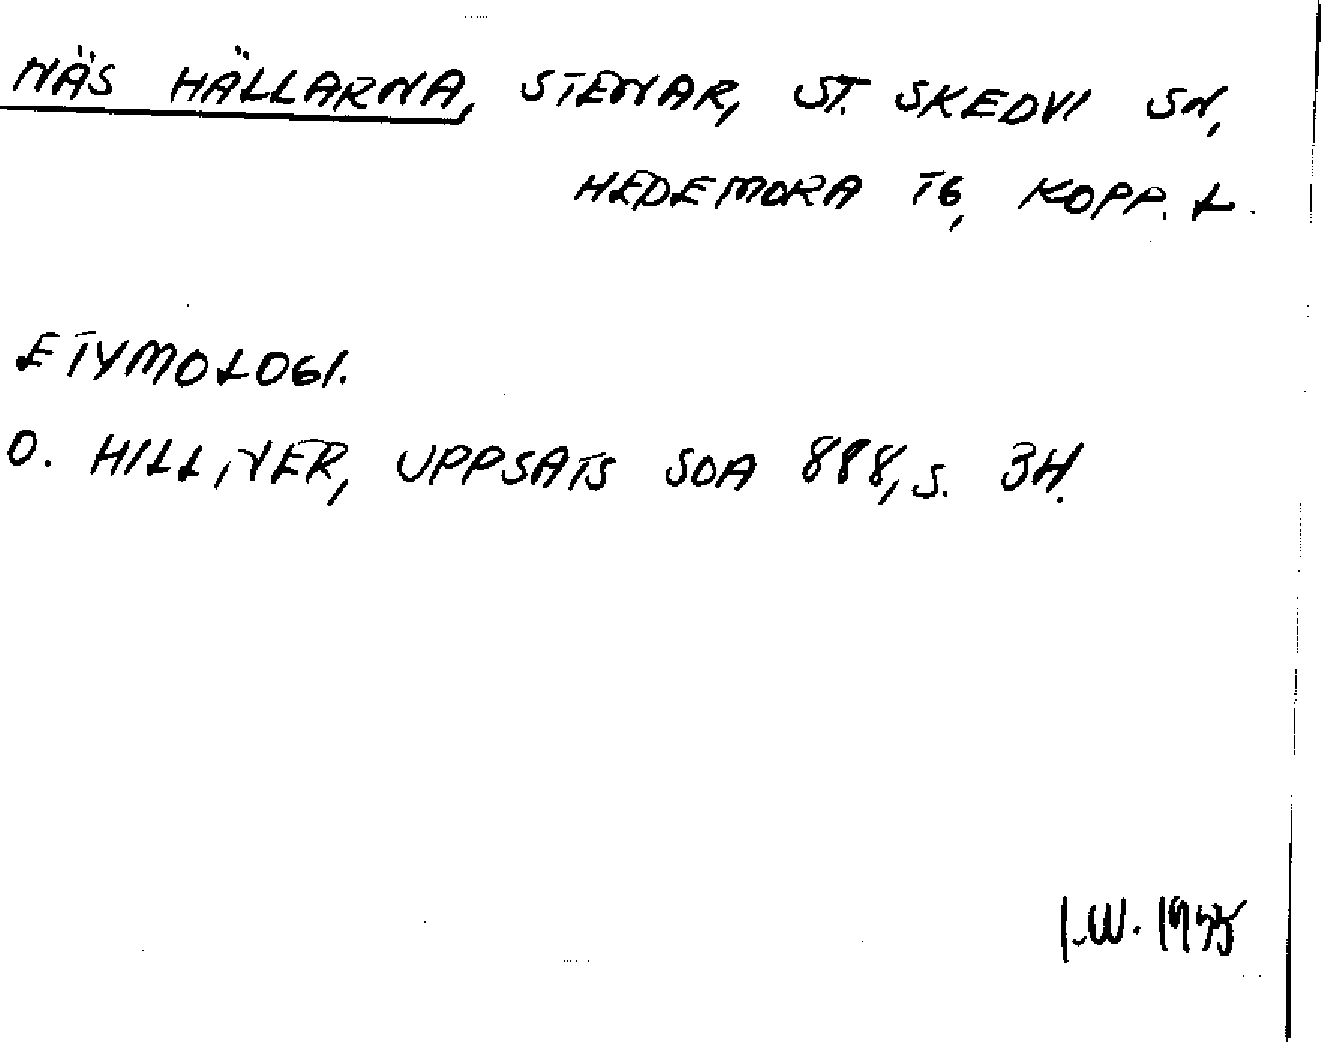 NÄS HÄLLARNA, STENAR, ST. SKEDVI SN,
HEDEMORA TG, KOPP. L.
ETYMOLOGI.
O. HILLINER, UPPSATS SOA 888, S. 34.
I.W. 1955